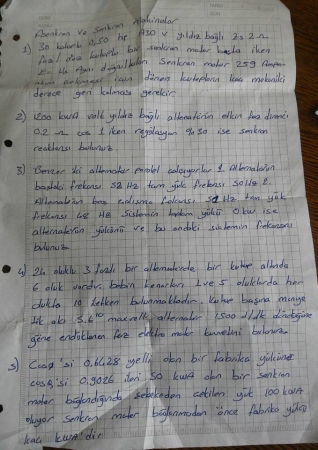 Asenkron ve Senkron Makinalar
1) 30 kutuplu 50 Hz 1730 V yıldız bağlı 2 Ω
3 faz 1 kutuplu bir senkron motor boşta iken
E = Vt Aynı değerdedir. Senkron motor 259 Amper
akım çekmesi için dönen kutupların kaç mekanik
derece geri kalması gerekir
2) 1200 kWA volt yıldız bağlı alternatörün etkin faz direnci
0.2 Ω cos 1 iken regülasyon %30 ise senkron
reaktansı bulunuz.
3) Benzer iki alternatör paralel çalışıyorlar 1. Alternatörün
boştaki frekansı 52 Hz tam yük frekansı 50 Hz 2.
Alternatörün boş çalışma frekansı 51 Hz tam yük
frekansı 48 Hz Sistemin toplam yükü 0 kw ise
alternatörün yükünü ve bu andaki sistemin frekansını
bulunuz
4) 24 oluklu 3 fazlı bir alternatörde bir kutup altında
6 oluk vardır. bobin kenarları 1 ve 5 oluklarda her
olukta 10 iletken bulunmaktadır. Kutup başına manye
tik akı 3.6 10 maxwell, alternatör 1500 d/dk döndüğüne
göre endüklenen faz elektro motor kuvvetini bulunuz
5) Cosφ'si 0.6428 geri olan bir fabrika yüküne
cosφ'si 0.9026 ileri 50 kWA olan bir senkron
motor bağlandığında şebekeden çekilen yük 100 kWA
oluyor senkron motor bağlanmadan önce fabrika yükü
kaç kWA'dir